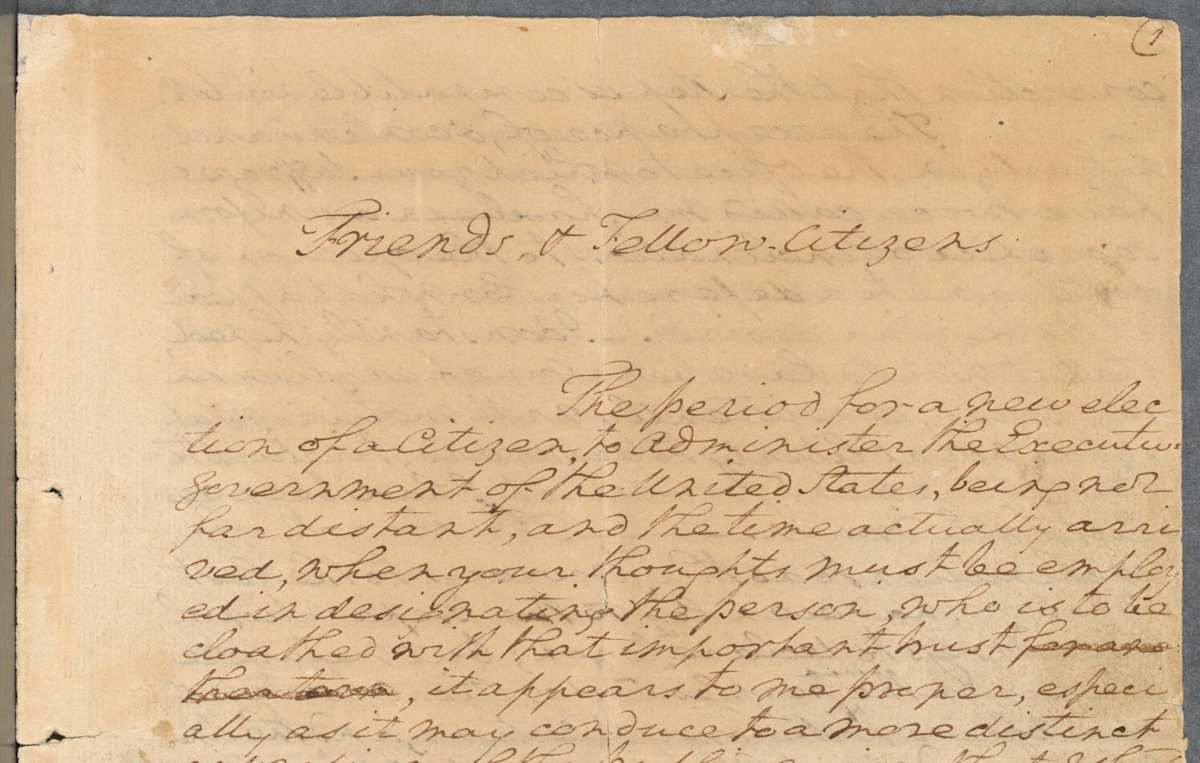 (1
Friends, & Fellow-Citizens
The period for a new elec
tion of a Citizen, to administer the Executive
government of the United States, being not
far distant, and the time actually arri
ved, when your thoughts must be employ
ed in designating the person, who is to be
cloathed with that important trust for ano
ther term, it appears to me proper, especi
ally as it may conduce to a more distinct